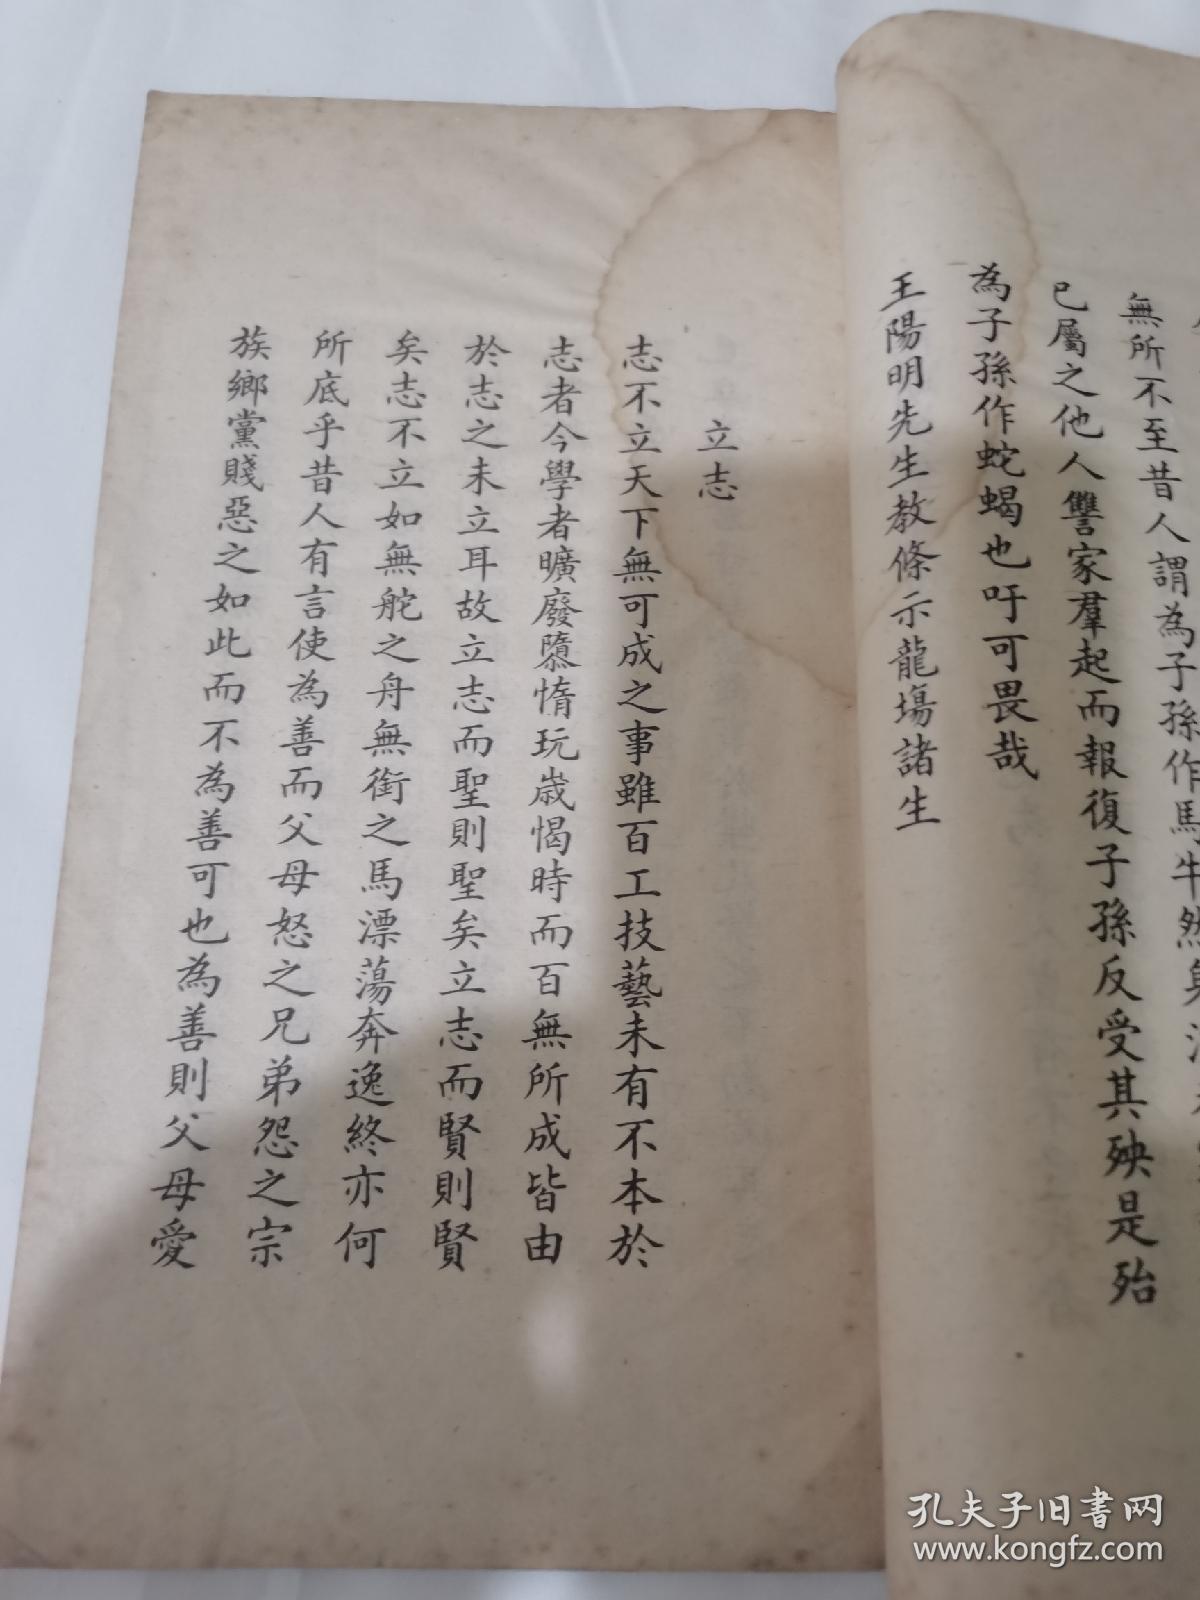 無所不至昔人謂為子孫作馬牛然
已屬之他人讐家羣起而報復子孫反受其殃是殆
為子孫作蛇蝎也吁可畏哉
王陽明先生教條示龍塲諸生
立志
志不立天下無可成之事雖百工技藝未有不本於
志者今學者曠廢隳惰玩歲愒時而百無所成皆由
於志之未立耳故立志而聖則聖矣立志而賢則賢
矣志不立如無舵之舟無銜之馬漂蕩奔逸終亦何
所底乎昔人有言使為善而父母怒之兄弟怨之宗
族鄉黨賤惡之如此而不為善可也為善則父母愛
孔夫子旧书网
www.kongfz.com